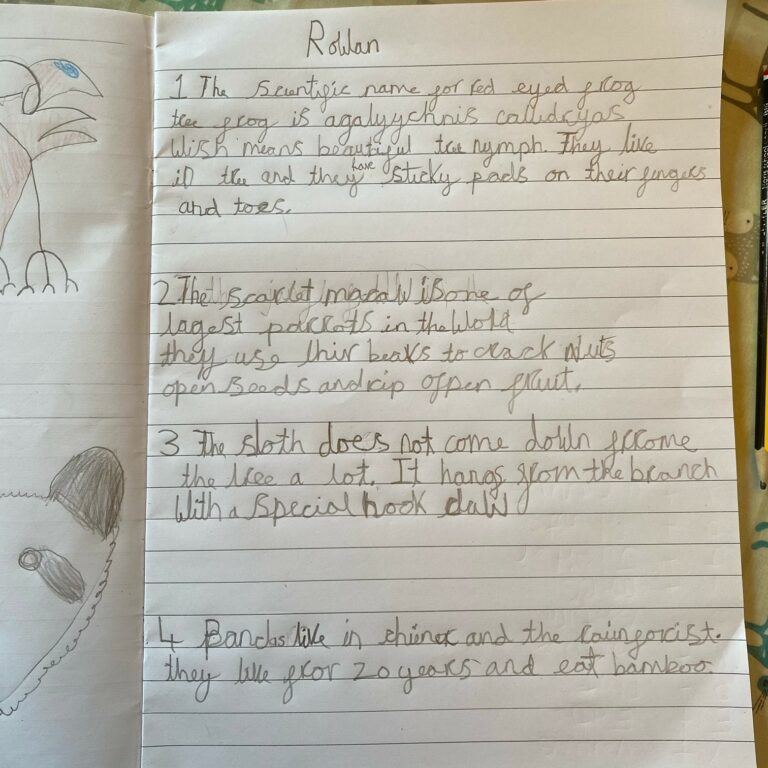 Rowan
1 The scientific name for red eyed frog
tree frog is agalyychnis calidryas
Wish means beautiful tree nymph. They live
in tree and they have sticky pads on their fingers
and toes.
2 The scarlet macaw is one of
lagest parrots in the world
they use thir beaks to crack Nuts
open seeds and rip ofpen fruit.
3 The sloth does not come down frome
the tree a lot. It hangs from the branch
With a special hook claw
4 Pandas live in chinex and the raingorist.
they live fror 20 years and eat bamboo.